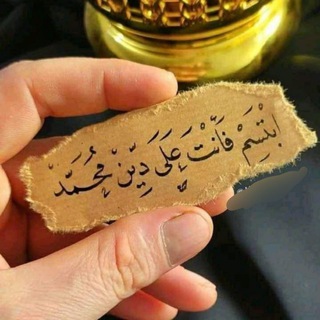 ابْتَسِمْ فَأَنْتَ عَلَى دِيْنِ مُحَمَّدْ